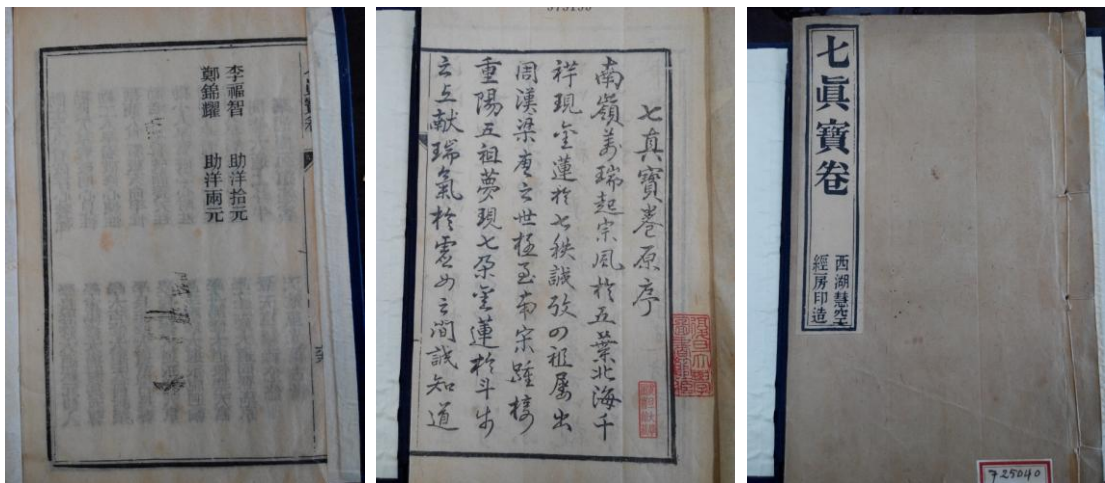 李福智 助洋拾元
鄭錦耀 助洋兩元
七真寶卷原序
南嶺萬瑞起宗風於五葉北海千
祥現金蓮於七秩誠攷四祖屢出
周漢梁唐之世極至南宋踵接
重陽五祖夢現七朵金蓮於斗牛
之上献瑞氣於虛女之間誠知道
七眞寶卷
西湖慧空
經房印造
725040